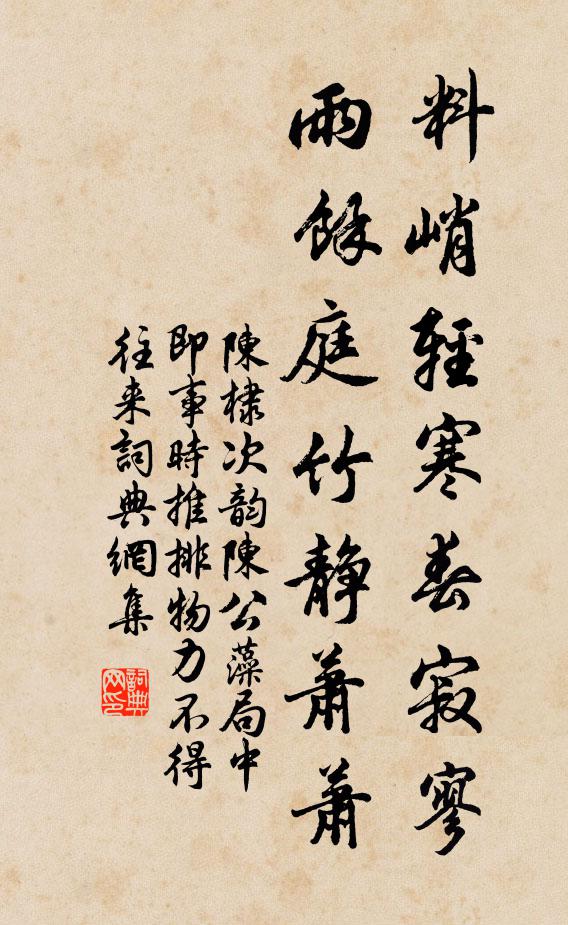 料峭輕寒春寂寥
雨餘庭竹靜蕭蕭
陳棣次韵陳公藻局中
即事時推排物力不得
往来詞典網集
詞典网印